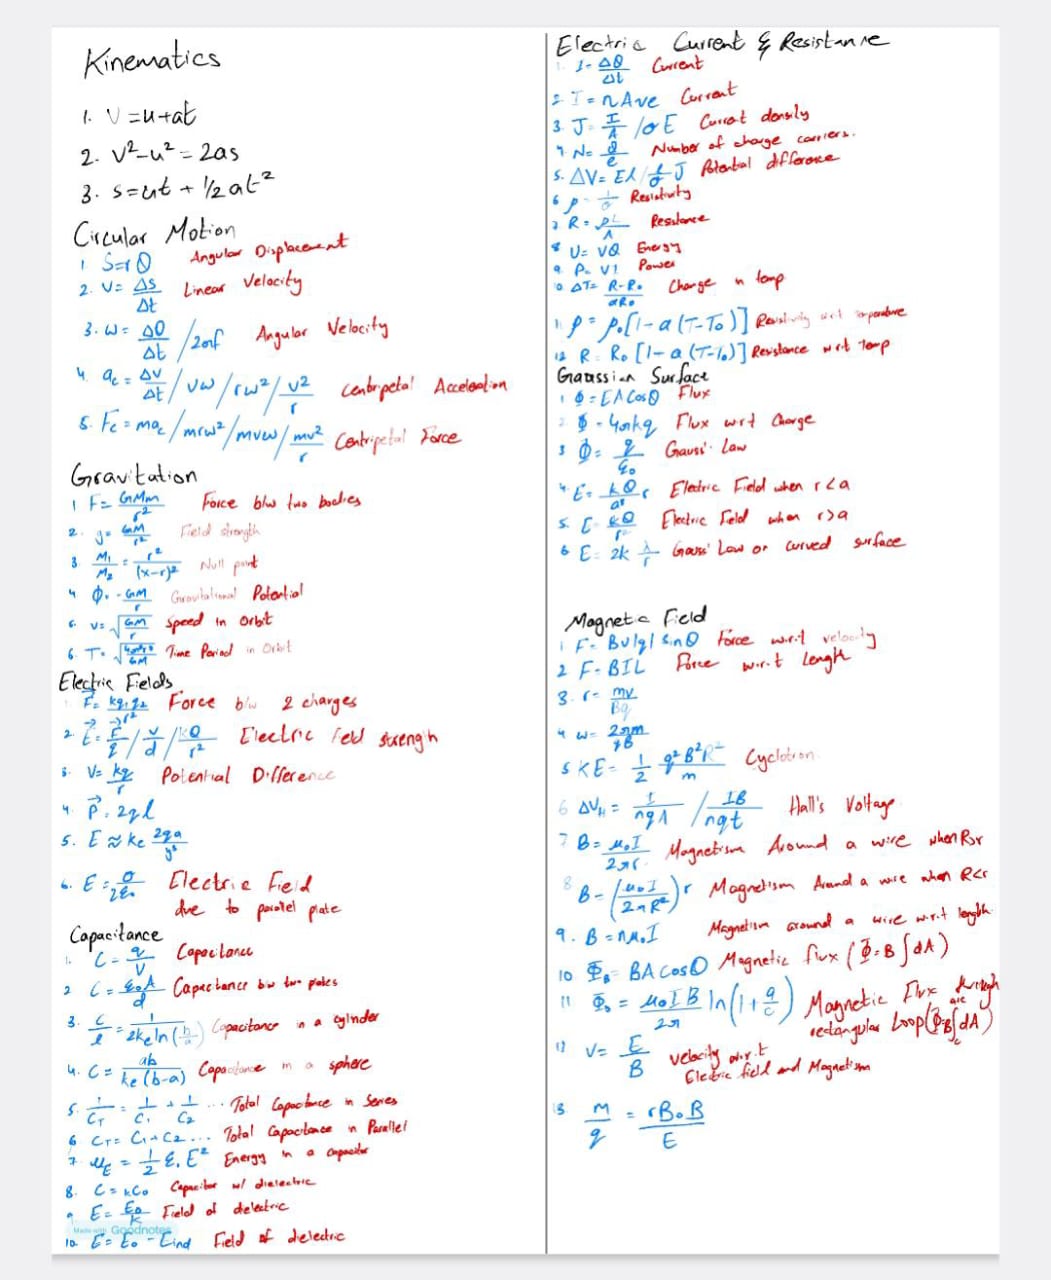 Kinematics
1. V=u+at
2. V²-u² = 2as
3. s=ut + ½at²
Circular Motion
1 S=rθ Angular Displacement
2. V= Δs/Δt Linear Velocity
3. ω= Δθ/Δt /2πf Angular Velocity
4. ac = Δv/Δt / vω / rω² / v²/r Centripetal Acceleration
5. Fc = mac / mrω² / mvω / mv²/r Centripetal Force
Gravitation
1 F= GMm/r² Force b/w two bodies
2. g= GM/r² Field strength
3 M₁/M₂ = r²/(x-r)² Null point
4 Φ. -GM/r Gravitational Potential
5. v= √GM/r Speed in Orbit
6. T= √4π²r³/GM Time Period in Orbit
Electric Fields
1. F= kq₁q₂/r² Force b/w 2 charges
2. E= F/q / V/d / kQ/r² Electric Field strength
3. V= kq/r Potential Difference
4. P. 2ql
5. E ≈ ke 2qa/y³
6. E = σ/2ε₀ Electric Field
due to parallel plate
Capacitance
1. C = q/V Capacitance
2 C = ε₀A/d Capacitance b/w two plates
3. C/l = 1/2ke ln(b/a) Capacitance in a cylinder
4. C = ab/ke(b-a) Capacitance in a sphere
5. 1/CT = 1/C₁ + 1/C₂ ... Total Capacitance in Series
6 CT= C₁+C₂... Total Capacitance in Parallel
7. uE = 1/2 ε₀E² Energy in a Capacitor
8. C = kC₀ Capacitor w/ dielectric
9 E= E₀/k Field of dielectric
Made with Goodnotes
10. E = E₀ - Eind Field of dielectric
Electric Current & Resistance
1. I= ΔQ/Δt Current
2 I = nAve Current
3. J= I/A /σE Current density
4 N= Q/e Number of charge carriers.
5. ΔV= El / l/σ J Potential difference
6 ρ 1/σ Resistivity
7 R = ρL/A Resistance
8 U= VQ Energy
9. P= VI Power
10 ΔT= R-R₀/αR₀ Change in temp
11. ρ = ρ₀[1-α(T-T₀)] Resistivity w.r.t temperature
12 R = R₀[1-α(T-T₀)] Resistance w.r.t Temp
Gaussian Surface
1 Φ = EACosθ Flux
2 Φ = 4πkq Flux wrt Charge
3 Φ = q/ε₀ Gauss' Law
4. E= kQ/a³ r Electric Field when r<a
5. E kQ/r² Electric Field when r>a
6 E= 2k λ/r Gauss' Law on curved surface
Magnetic Field
1 F= Bv|q| sinθ Force w.r.t velocity
2 F= BIL Force w.r.t Length
3. r= mv/Bq
4 ω= 2πm/qB
5 KE= 1/2 q²B²R²/m Cyclotron
6 ΔVH = 1/nqA / IB/nqt Hall's Voltage
7 B= μ₀I/2πr Magnetism Around a wire when R>r
8 B= (μ₀I/2πR²)r Magnetism Around a wire when R<r
9. B = nμ₀I Magnetism around a wire w.r.t length
10 ΦB= BACosθ Magnetic flux (Φ=B∫dA)
11 Φb = μ₀IB/2π ln(1+a/c) Magnetic Flux through
rectangular Loop (Φ=B∫dA)
12 V= E/B velocity w.r.t
Electric field and Magnetism
13 m/q = rB₀B/E